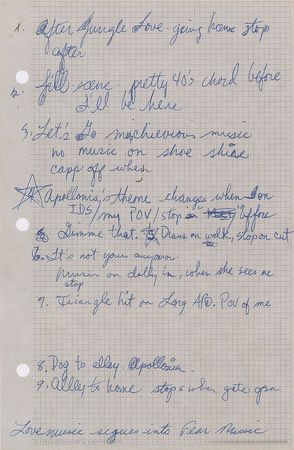 1. After Jungle Love going home stop
after
2. fill scene pretty 40's chord before
I'll be here
3. Let's Go mischievious music
no music on shoe shine
capp off when
Apollonia's theme changes when I on
IDS/my POV/stop before
Gimme that. Drums on walk, stop on cut
6. It's not your anymor
music on dolly in, when she sees me
stop
7. Triangle hit on Long APO. POV of me
8. Dog to alley. Apollonia.
9. Alley to home stops when gate open
Love music segues into Fear Music